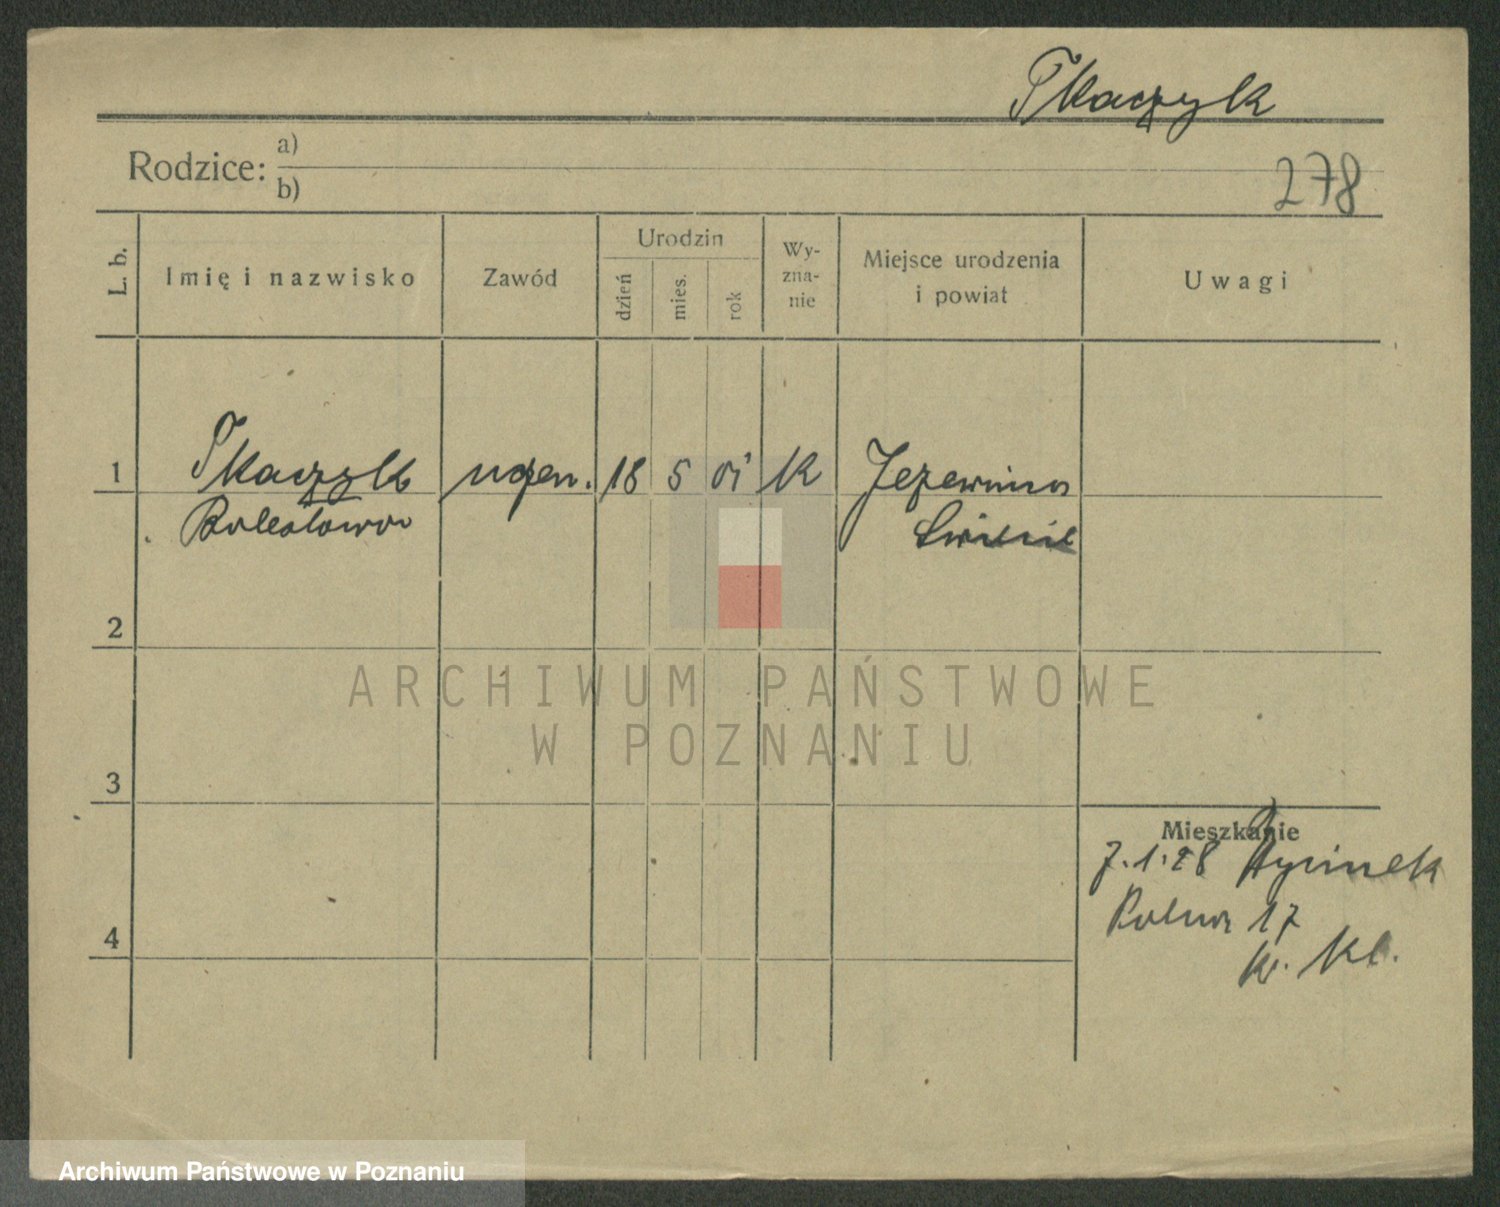 Tkaczyk
Rodzice: a)
b)
278
L. b.
Imię i nazwisko
Zawód
Urodzin
dzień
mies.
rok
Wy-
zna-
nie
Miejsce urodzenia
i powiat
Uwagi
1
Tkaczyk
Bolesława
uczen.
18
5
01
K
2
3
4
ARCHIWUM PAŃSTWOWE
W POZNANIU
Mieszkanie
7.1.28 Rynek
17
Kl.
Archiwum Państwowe w Poznaniu